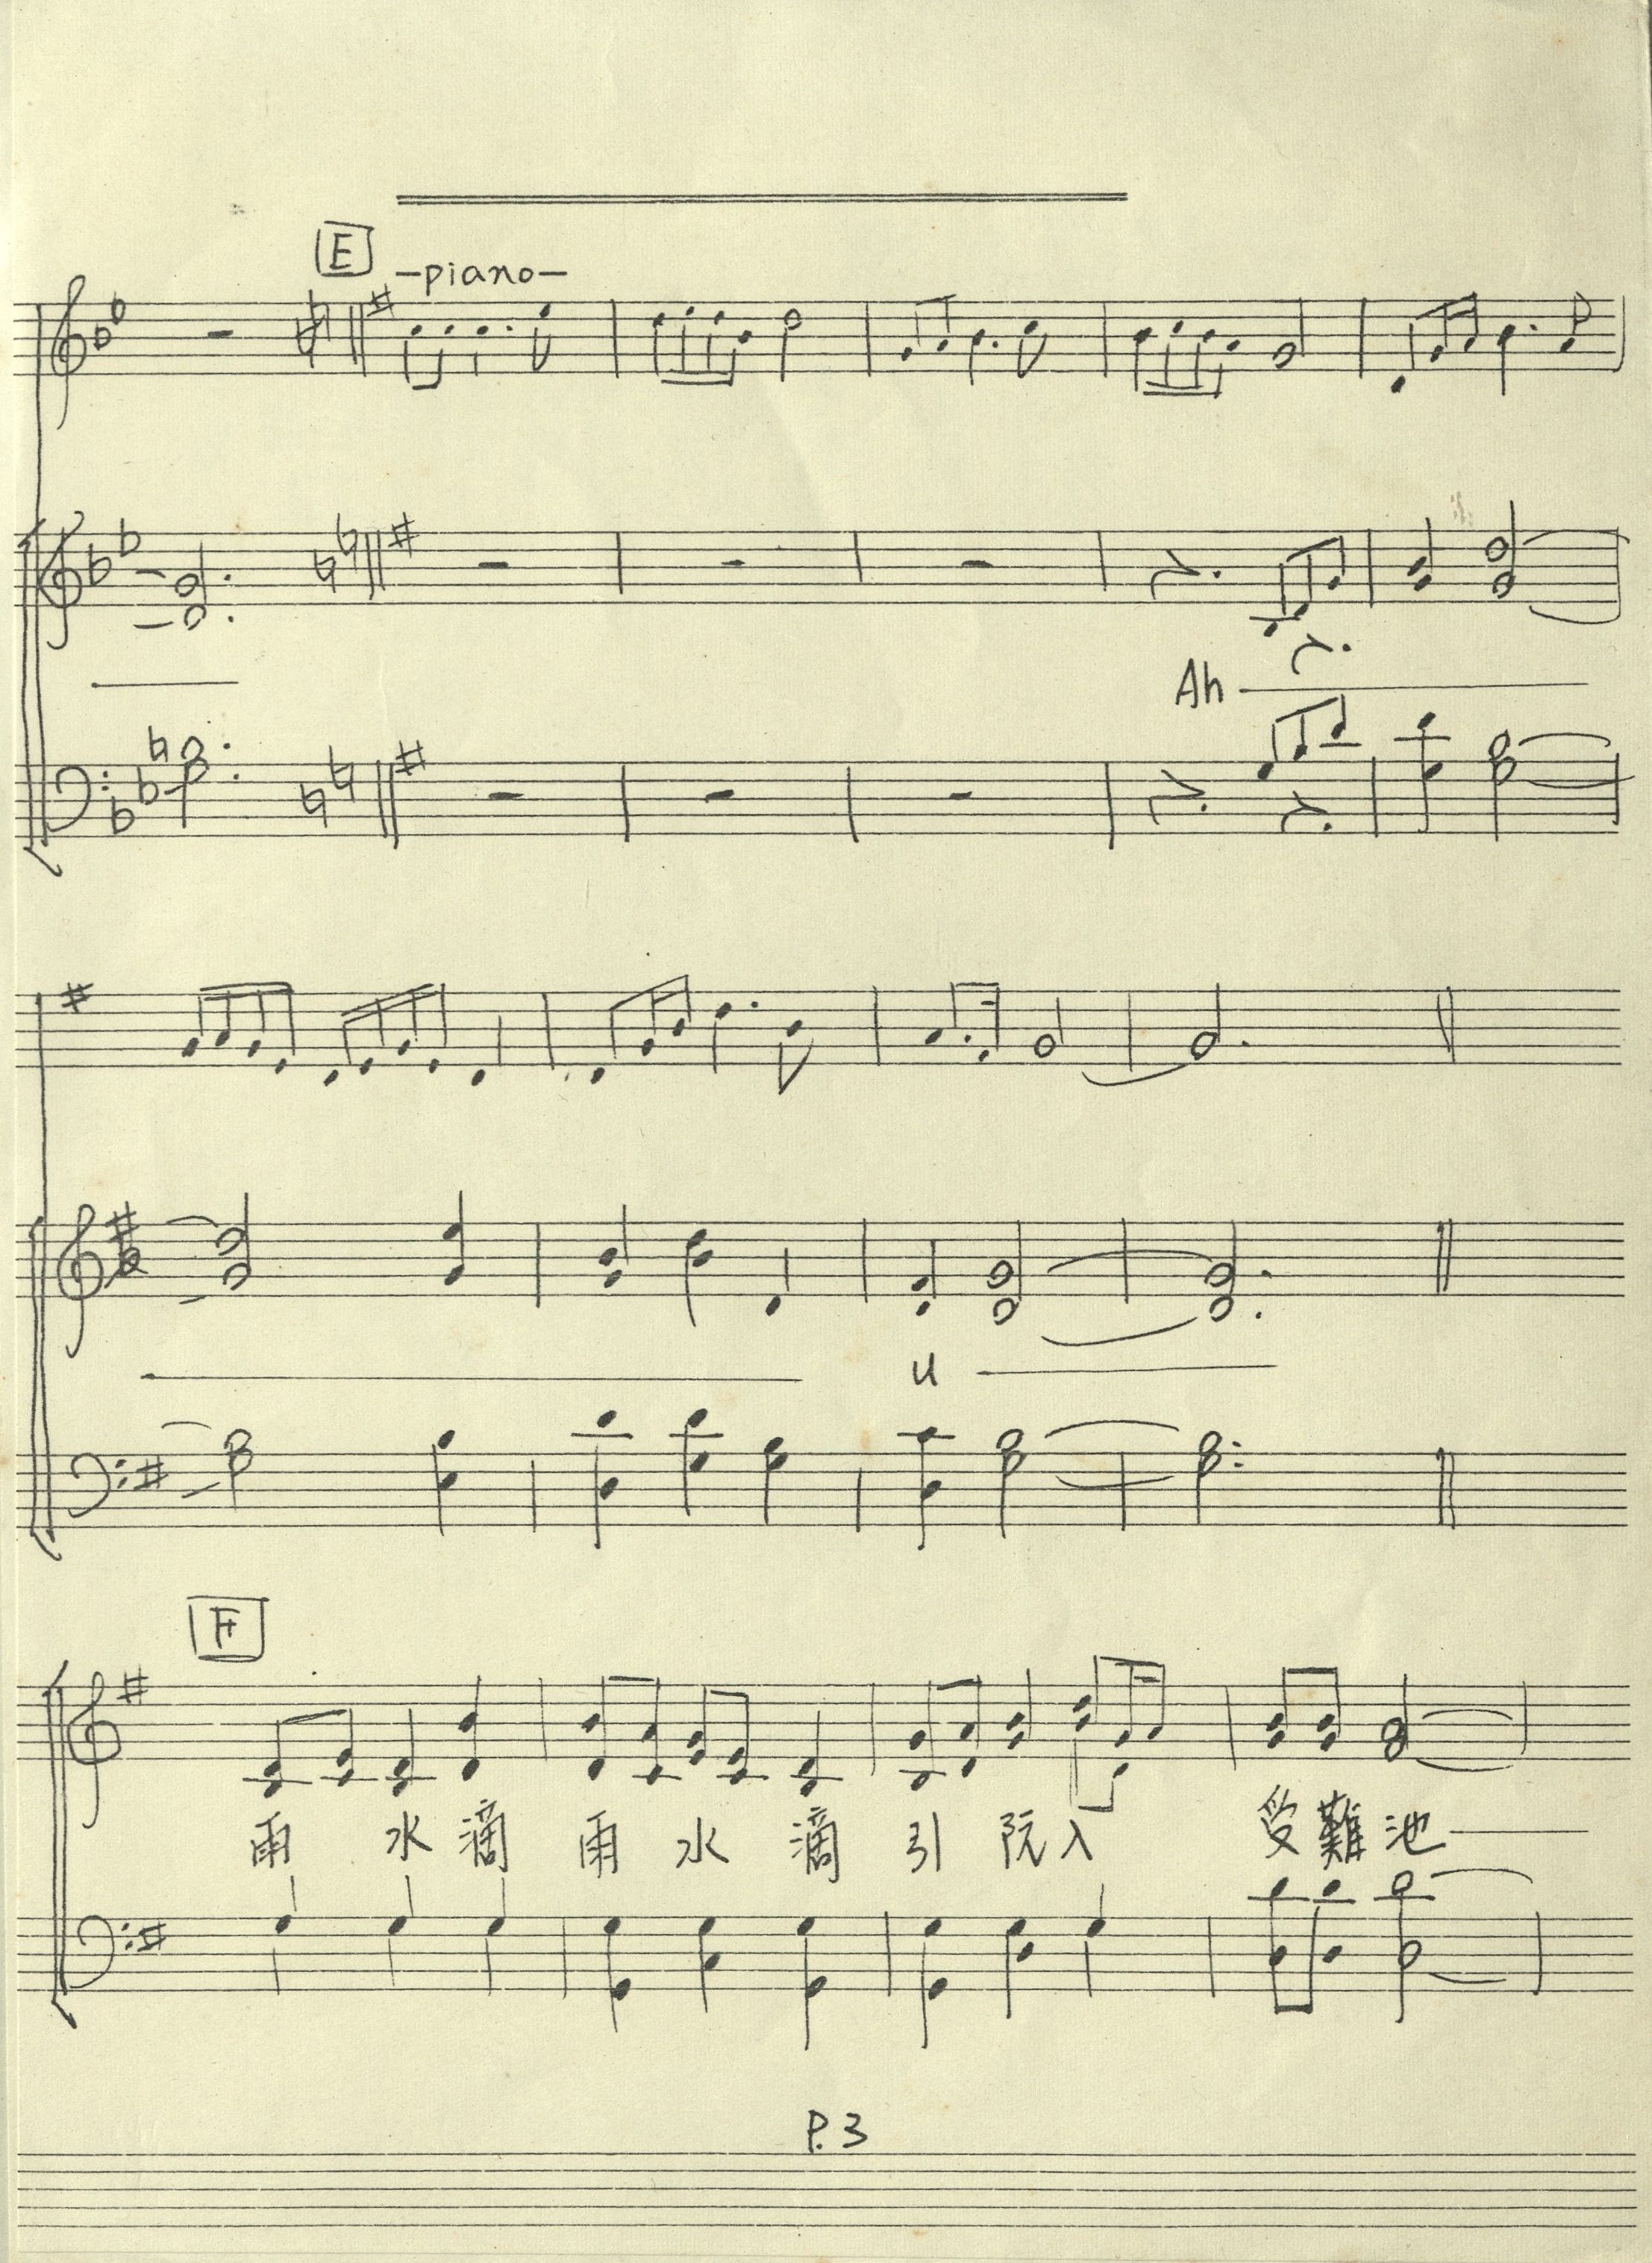 E
-piano-
Ah
u
F
雨 水 滴 雨 水 滴 引 阮 入 受 難 池
P.3